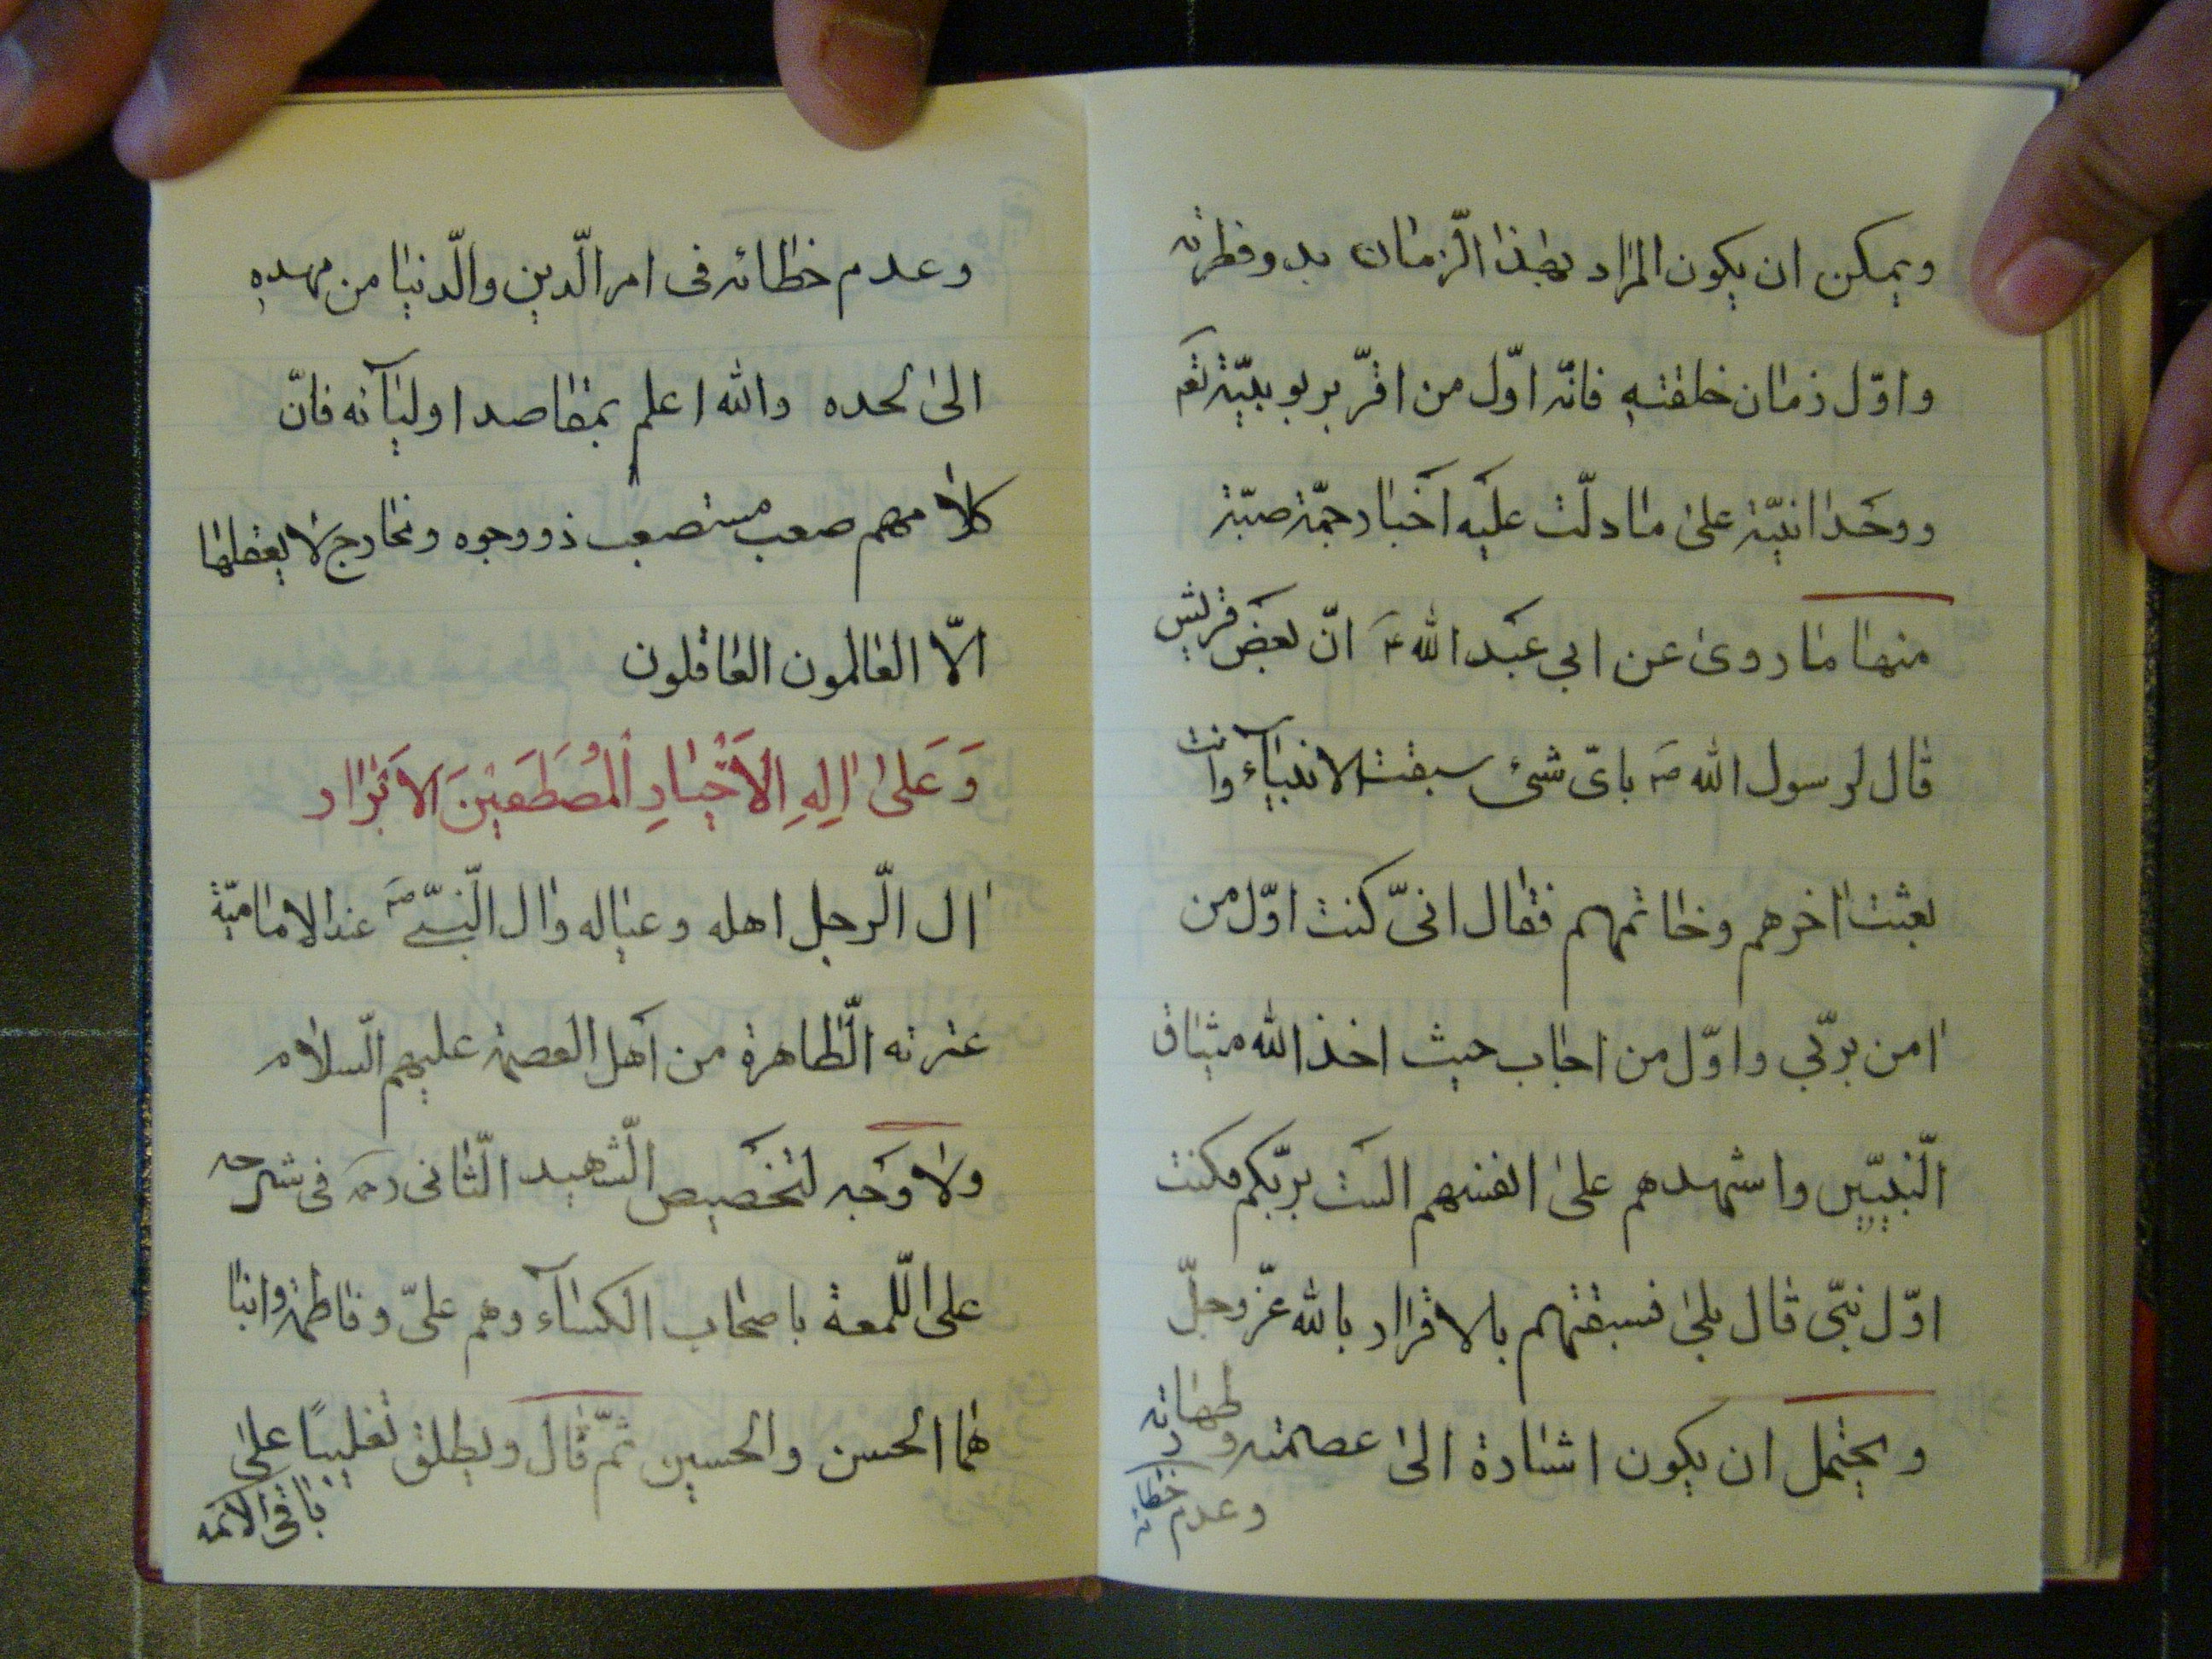 ويمكن ان يكون المراد بهذا الزّمان بدو فطرته
واوّل زمان خلقته فانّه اوّل من اقرّ بربوبيّته تعم
ووحدانيّته على ما دلّت عليه اخبار جمّة صبّة
منها ما روى عن ابي عبد الله ع انّ بعض قريش
قال لرسول الله ص باىّ شئ سبقت الانبيآء وانت
بعثت اخرهم وخاتمهم فقال انىّ كنت اوّل من
امن بربّي واوّل من اجاب حيث اخذ الله ميثاق
النّبيّين واشهدهم على انفسهم الست بربّكم فكنت
اوّل نبىّ قال بلى فسبقتهم بالاقرار بالله عزّ وجلّ
ويحتمل ان يكون اشارة الى عصمته وطهارته
وعدم خطائه
وعدم خطائه فى امر الّدين والّدنيا من مهده
الى لحده والله اعلم بمقاصد اوليآئه فانّ
كلامهم صعب مستصعب ذو وجوه ومخارج لا يعقلها
الاّ العالمون العاقلون
وَعَلىٰ الِهِ الاَخْيارِ المُصطَفَيْنَ الاَبْرار
ال الّرجل اهله وعياله وال النّبىّ ص عند الاماميّة
عترته الّطاهرة من اهل العصمة عليهم الّسلام
ولا وجه لتخصيص الّشهيد الّثانى ره فى شرحه
على الّلمعة باصحاب الكسآء وهم علىّ وفاطمة وابنا
هما الحسن والحسين ثمّ قال ويطلق تغليبًا على
باقى الائمه